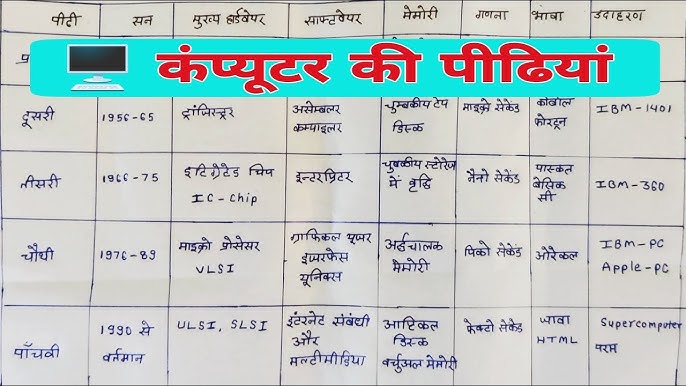 पीढी सन मुख्य हार्डवेयर साफ्टवेयर मेमोरी गणना भाषा उदाहरण
कंप्यूटर की पीढियां
दूसरी 1956-65 ट्रांजिस्ट्रर असेम्बलर कम्पाइलर चुम्बकीय टेप डिस्क माइक्रो सेकेंड कोबोल फोरट्रन IBM-1401
तीसरी 1966-75 इंटिग्रेटेड चिप IC-Chip इन्टरप्रिटर चुबकीय स्टोरेज में वृद्धि नैनो सेकेंड पास्कल बेसिक सी IBM-360
चौथी 1976-89 माइक्रो प्रोसेसर VLSI ग्राफिकल यूजर इण्टरफेस यूनिक्स अर्द्धचालक मेमोरी पिको सेकेंड ओरेकल IBM-PC Apple-PC
पाँचवी 1990 से वर्तमान ULSI, SLSI इंटरनेट संबंधी और मल्टीमीडिया आप्टिकल डिस्क वर्चुअल मेमोरी फेक्टो सेकेंड जावा HTML Supercomputer परम